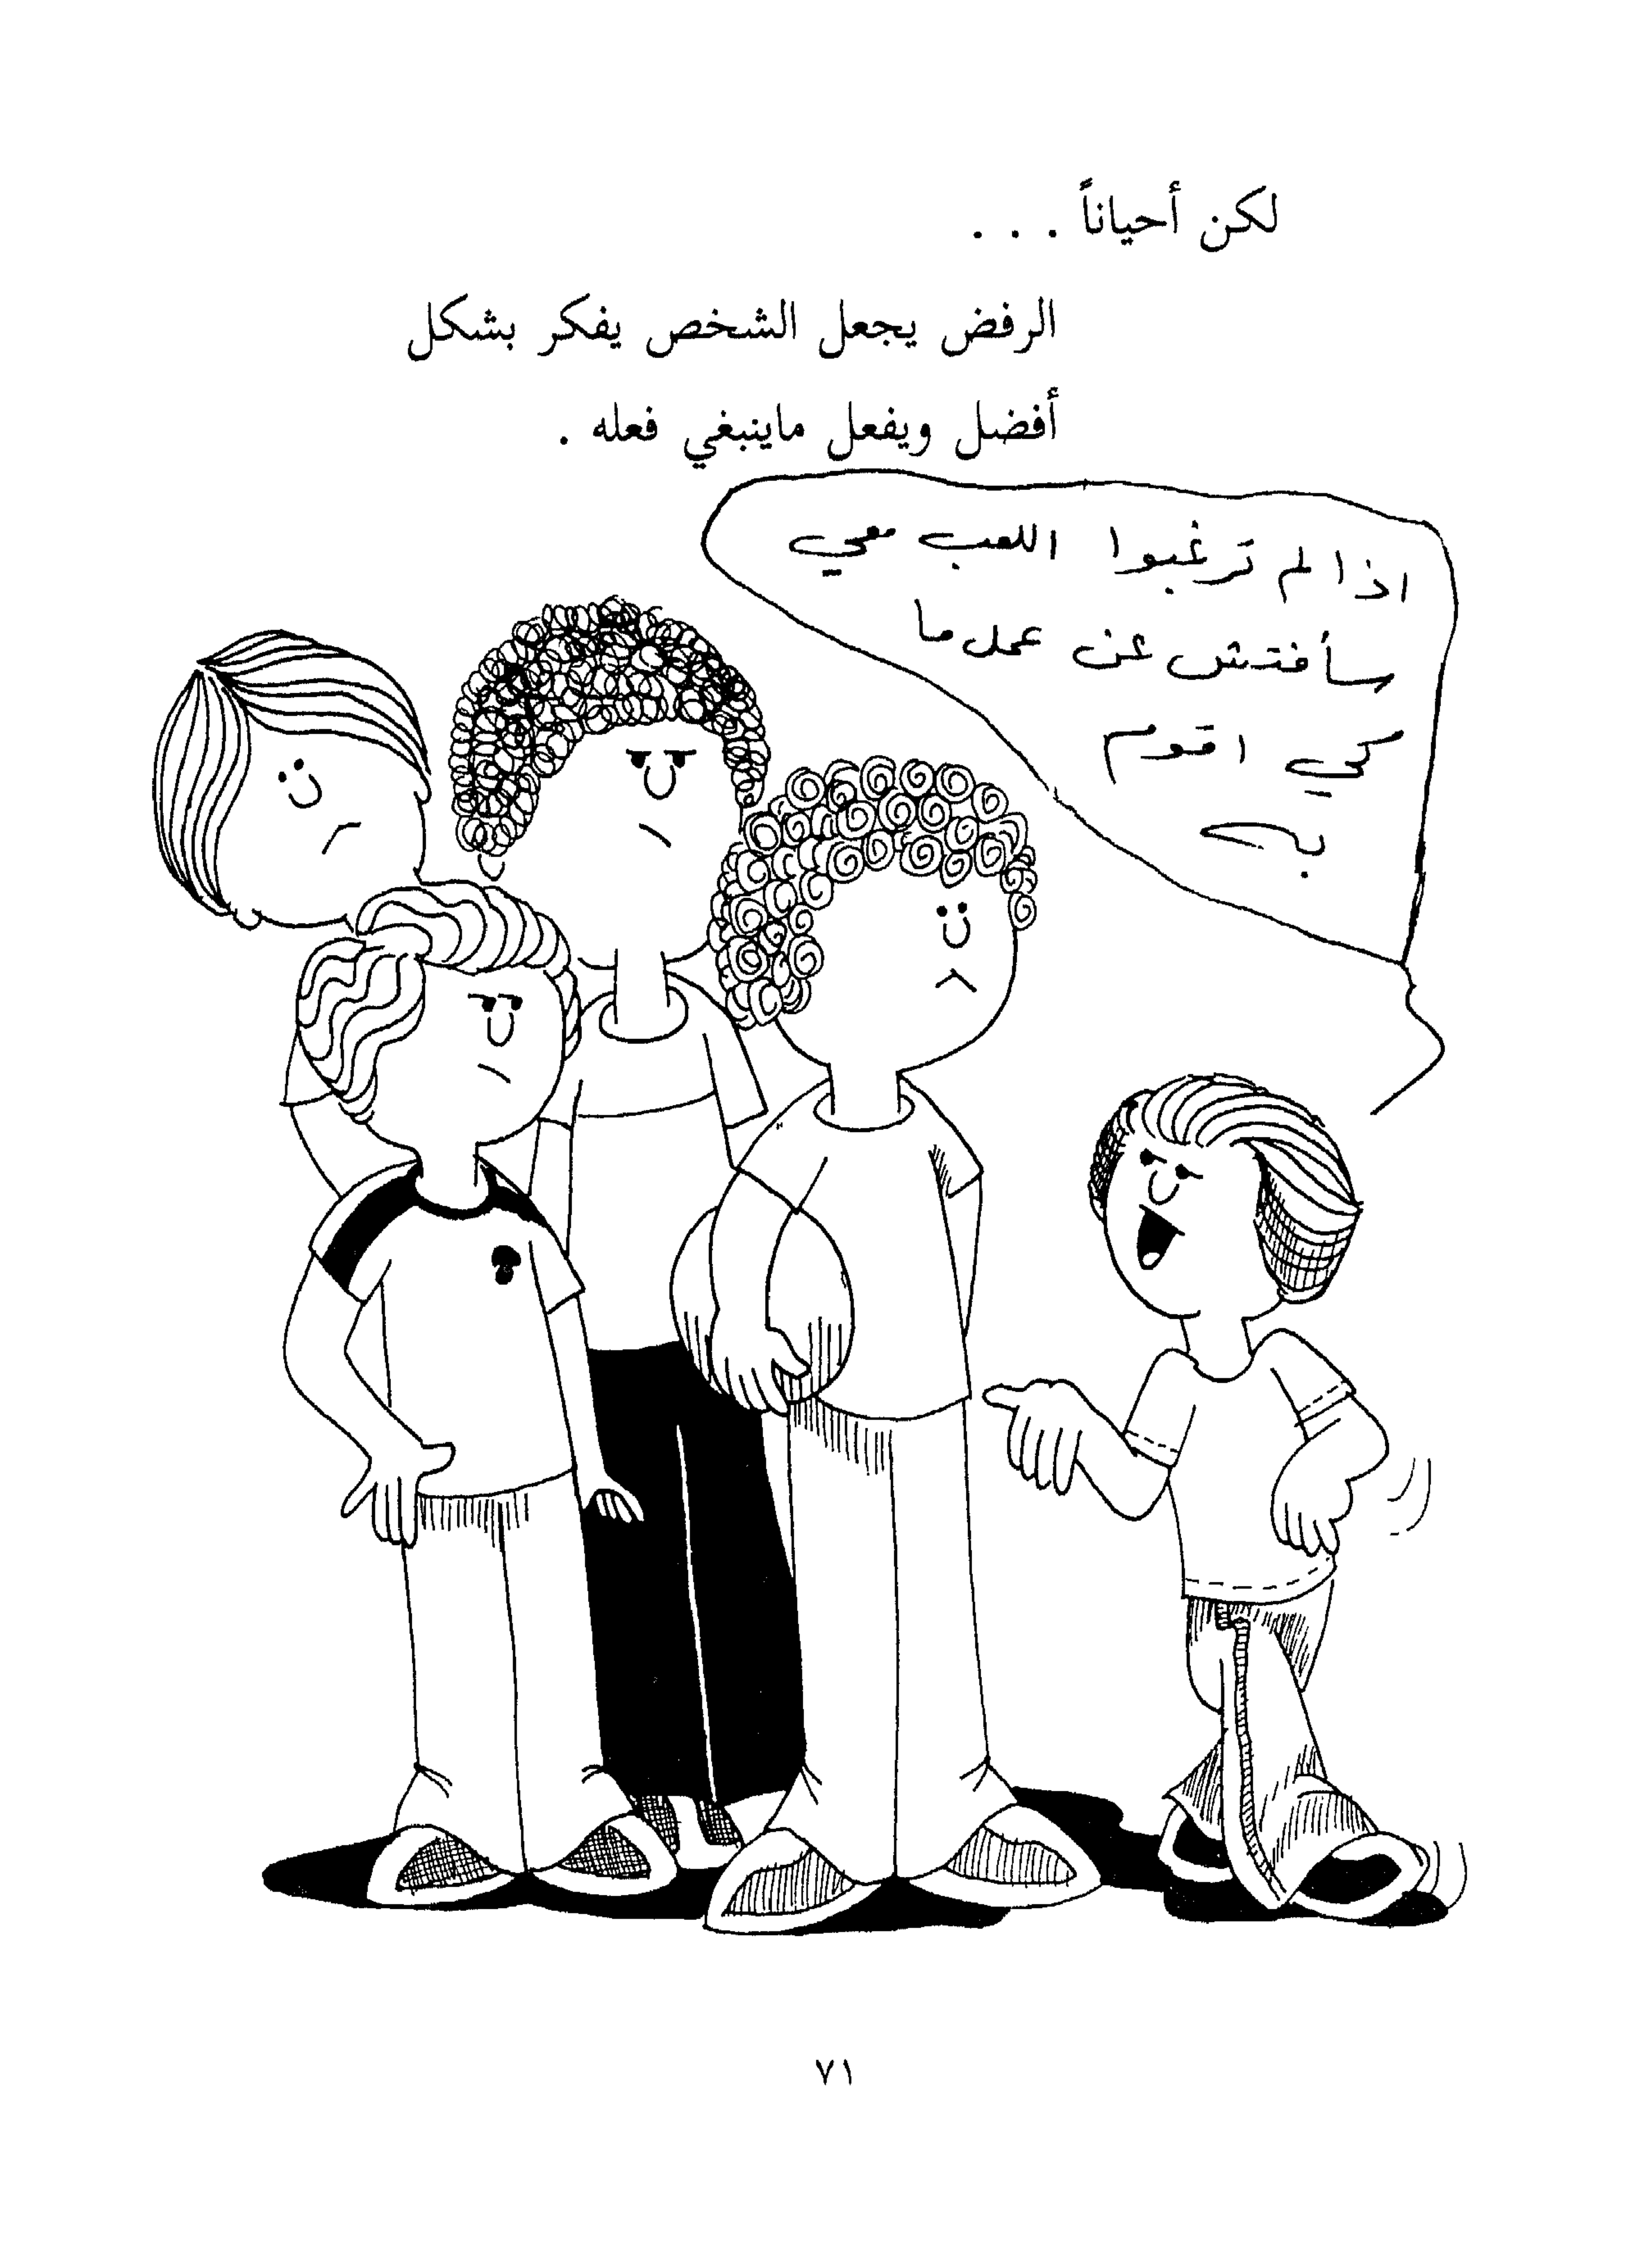 لكن أحياناً . . .
الرفض يجعل الشخص يفكر بشكل
أفضل ويفعل ماينبغي فعله .
اذا لم ترغبوا اللعب معي
سأفتش عن عمل ما
كي اقوم
به
٧١